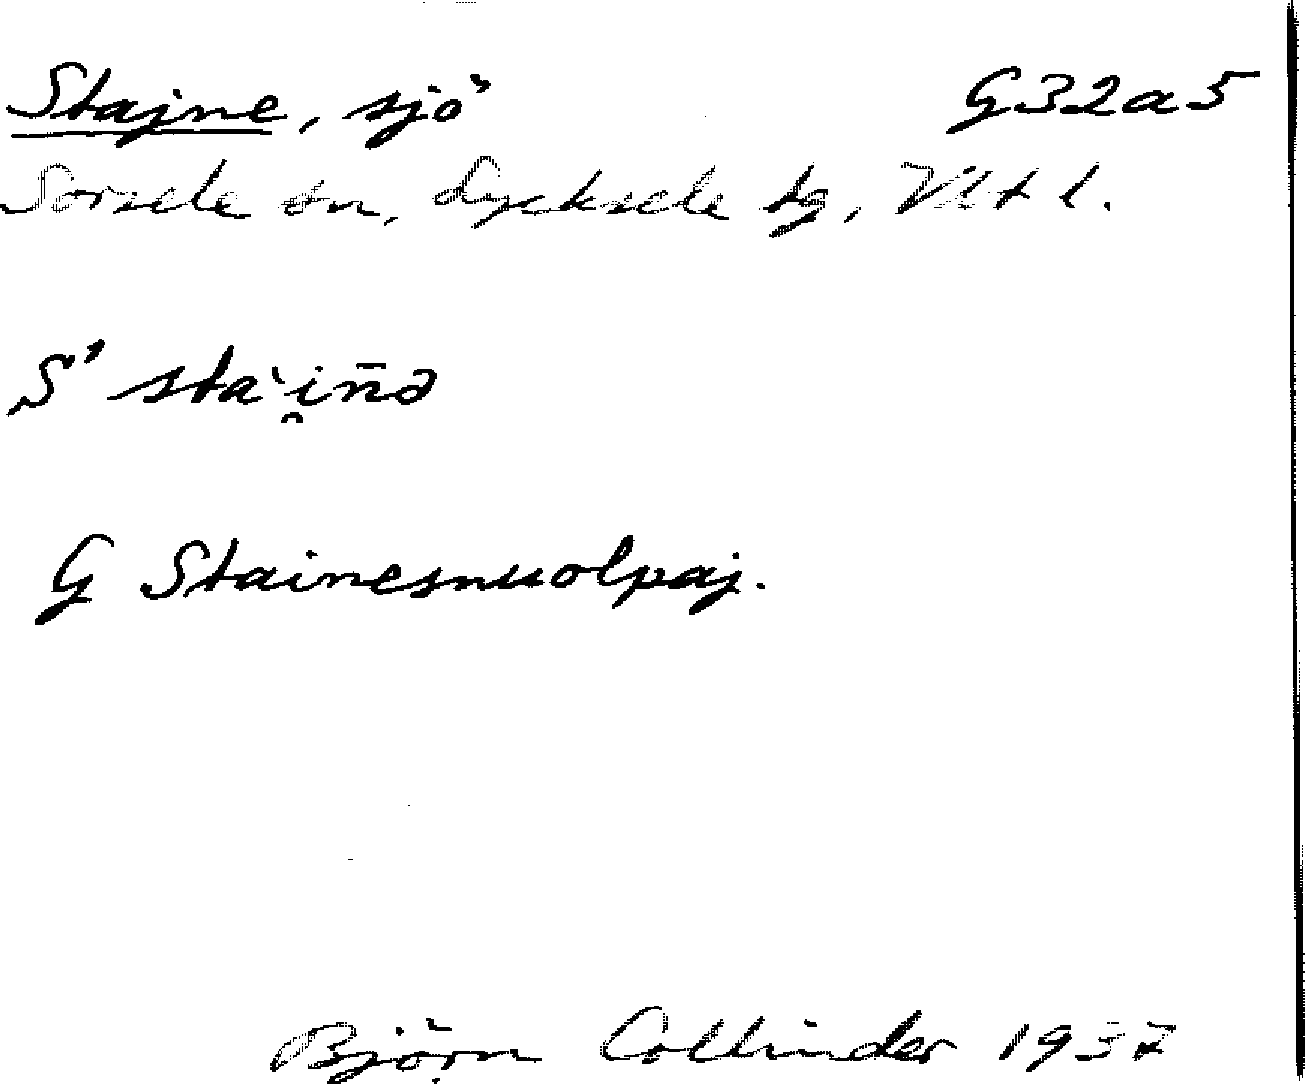 Stajne, sjö G32a5
Sorsele sn, Lycksele tg, Vlt l.
S' sta`i̯n̄ə
G Stainesnuolpaj.
Björn Collinder 1937